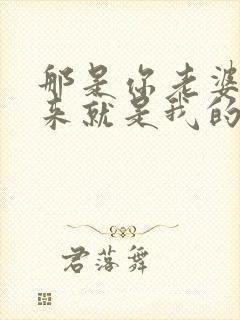 那是你老婆
来就是我的
君落舞